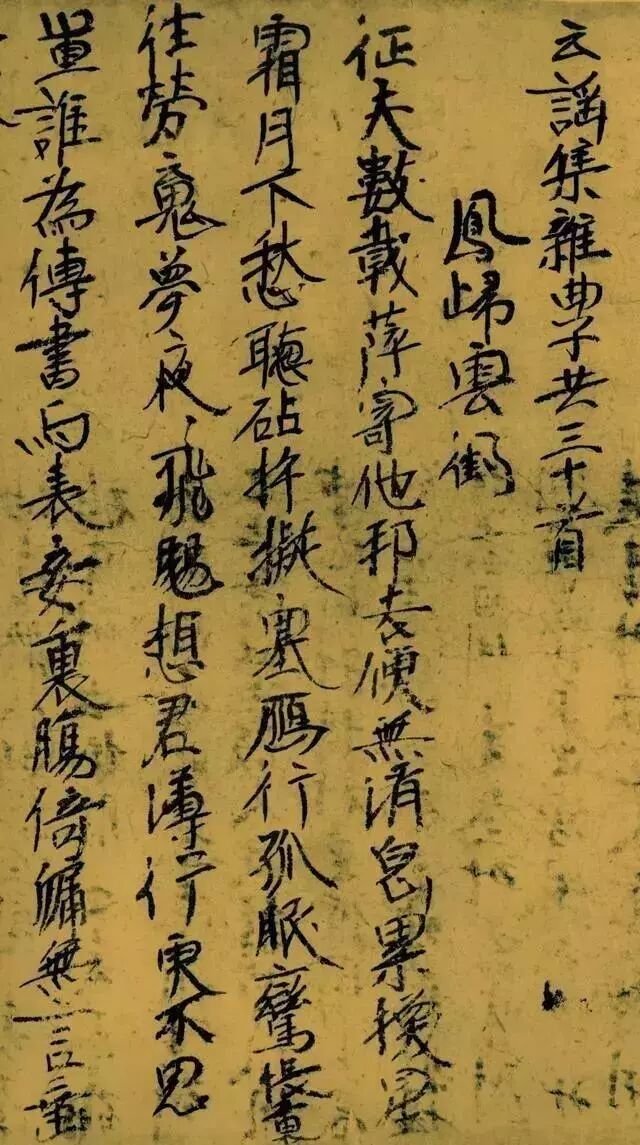 云謡集雜曲子共三十首
鳳歸雲
征夫數載萍寄他邦去便無消息累換星
霜月下愁聽砧杵擬塞鴈行孤眠鸞帳裏
往勞魂夢夜々飛颺想君薄行更不思
量誰為傳書与表妾衷腸倚牖無言垂